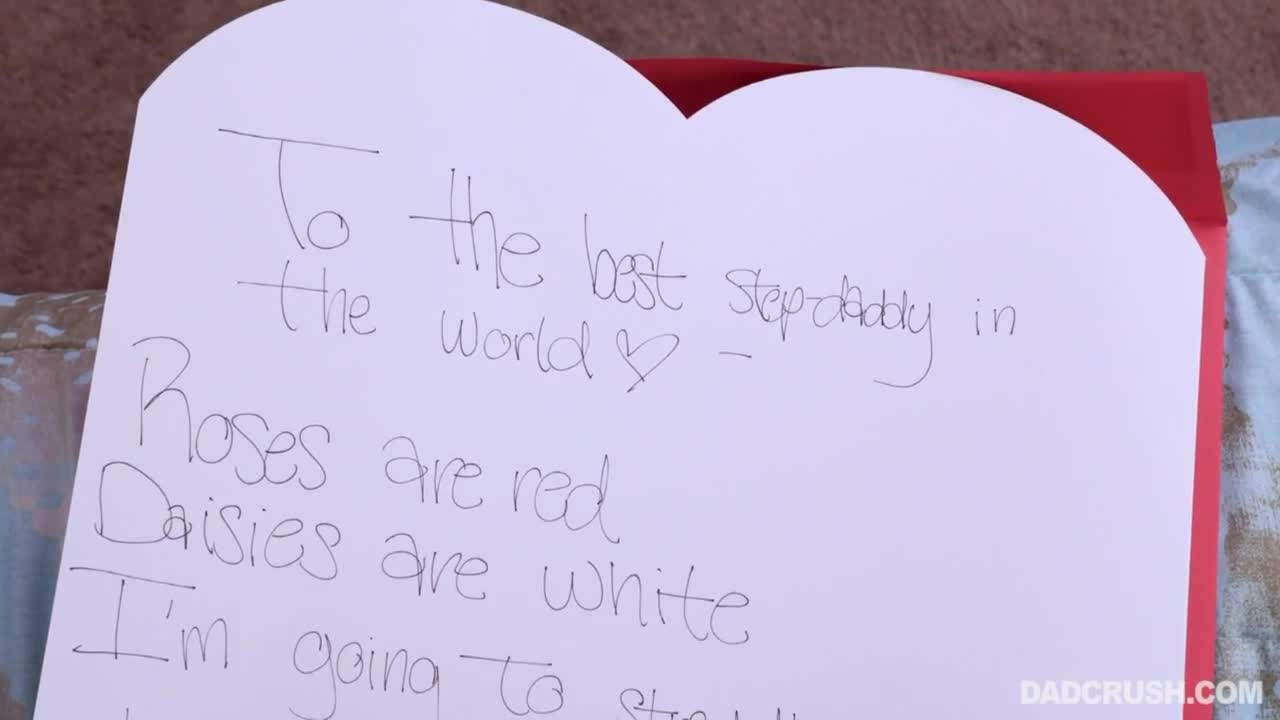 To the best step-daddy in
the world ♡ –
Roses are red
Daisies are white
I'm going to
DADCRUSH.COM